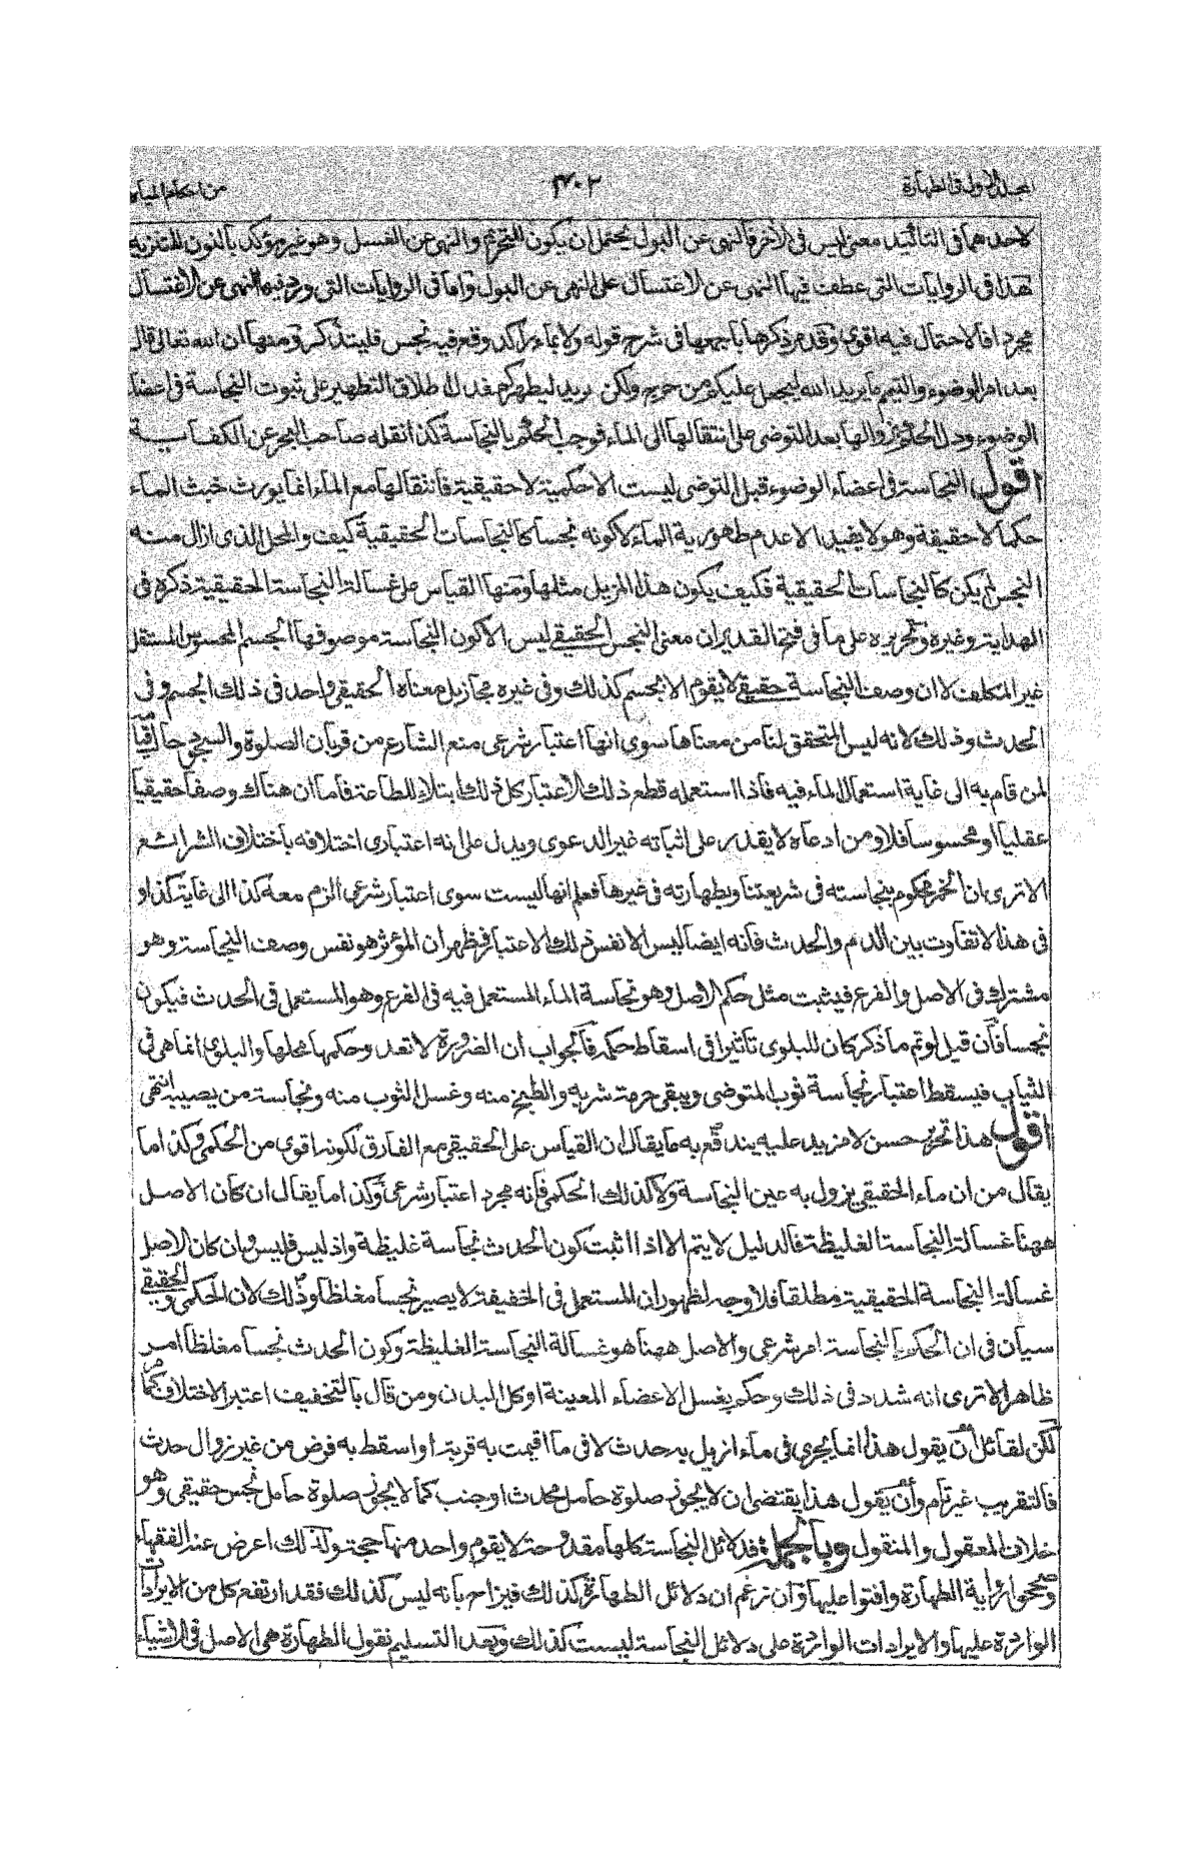 المجلد الاول فى الطهارة ٣٠٢ من احكام المياه
لاحدهما فى التاكيد معنى ليس فى الآخر فالنهى عن البول يحتمل ان يكون للتحريم والنهى عن الغسل وهو غير مؤكد بالنون للتنزيه
هذا فى الروايات التى عطف فيها النهى عن الاغتسال على النهى عن البول واما فى الروايات التى ورد فيها النهى عن الاغتسال
مجردا فالاحتمال فيه اقوى وقد مر ذكرها باجمعها فى شرح قوله ولا بماء راكد وقع فيه نجس فليتذكر ومنها ان الله تعالى قال
بعد امر الوضوء والتيمم ما يريد الله ليجعل عليكم من حرج ولكن يريد ليطهركم فدل اطلاق التطهير على ثبوت النجاسة فى اعضاء
الوضوء ودل الحكم بزوالها بعد التوضى على انتقالها الى الماء فوجب الحكم بالنجاسة كذا نقله صاحب البحر عن الكفاية
اقول النجاسة فى اعضاء الوضوء قبل التوضى ليست الا حكمية لا حقيقية فانتقالها مع الماء انما يورث خبث الماء
حكما لا حقيقة وهو لا يفيد الا عدم طهورية الماء لا كونه نجسا كالنجاسات الحقيقية كيف والمحل الذى ازال منه
النجس لم يكن كالنجاسات الحقيقية فكيف يكون هذا المزيل مثلها ومنها القياس على غسالة النجاسة الحقيقية ذكره فى
الهداية وغيره وتحريره على ما فى فتح القدير ان معنى النجس الحقيقى ليس الا كون النجاسة موصوفها الجسم المحسوس المستقل
غير المكلف لا ان وصف النجاسة حقيقى لا يقوم الا بجسم كذلك وفى غيره مجاز بل معناه الحقيقى واحد فى ذلك الجسم وفى
الحدث وذلك لانه ليس المتحقق لنا من معناها سوى انها اعتبار شرعى منع الشارع من قربان الصلوة والسجود حال قيامه
لمن قام به الى غاية استعمال الماء فيه فاذا استعمله قطع ذلك الاعتبار كل ذلك ابتلاء للطاعة فاما ان هناك وصفا حقيقيا
عقليا او محسوسا فلا ومن ادعاه لا يقدر على اثباته غير الدعوى ويدل على انه اعتبارى اختلافه باختلاف الشرائع
الا ترى ان الخمر محكوم بنجاسته فى شريعتنا وبطهارته فى غيرها فعلم انها ليست سوى اعتبار شرعى الزم معه كذا الى غاية كذا و
فى هذا لا تفاوت بين الدم والحدث فانه ايضا ليس الا نفس ذلك الاعتبار فظهر ان المؤثر هو نفس وصف النجاسة وهو
مشترك فى الاصل والفرع فيثبت مثل حكم الاصل وهو نجاسة الماء المستعمل فيه فى الفرع وهو المستعمل فى الحدث فيكون
نجسا فان قيل لو تم ما ذكر كان للبلوى تاثيرا فى اسقاط حكمه فالجواب ان الضرورة لا تعد وحكمها محلها والبلوى انما هى فى
الثياب فيسقط اعتبار نجاسة ثوب المتوضى ويبقى حرمة شربه والطبخ منه وغسل الثوب منه ونجاسة من يصيبه انتهى
اقول هذا تحرير حسن لا مزيد عليه يندفع به ما يقال ان القياس على الحقيقى مع الفارق لكونه اقوى من الحكمى وكذا ما
يقال من ان ماء الحقيقى يزول به عين النجاسة ولا كذلك الحكمى فانه مجرد اعتبار شرعى وكذا ما يقال ان كان الاصل
ههنا غسالة النجاسة الغليظة فالدليل لا يتم الا اذا اثبت كون الحدث نجاسة غليظة واذ ليس فليس وان كان الاصل
غسالة النجاسة الحقيقية مطلقا فلا وجه لظهور ان المستعمل فى الخفيفة لا يصير نجسا مغلظا وذلك لان الحكمى والحقيقى
سيان فى ان الحكم بالنجاسة امر شرعى والاصل ههنا هو غسالة النجاسة الغليظة وكون الحدث نجسا مغلظا امر
ظاهر الا ترى انه شدد فى ذلك وحكم بغسل الاعضاء المعينة او كل البدن ومن قال بالتخفيف اعتبر الاختلاف كما مر
لكن لقائل ان يقول هذا انما يجرى فى ماء ازيل به حدث لا فى ما اقيمت به قربة او اسقط به فرض من غير زوال حدث
فالتقريب غير تام وان يقول هذا يقتضى ان لا يجوز صلوة حامل محدث او جنب كما لا يجوز صلوة حامل نجس حقيقى وهو
خلاف المعقول والمنقول وبالجملة فدلائل النجاسة كلها مقدوحة لا يقوم واحد منها حجة ولذلك اعرض عنه الفقهاء
وصححوا رواية الطهارة وافتوا عليها وان زعم ان دلائل الطهارة كذلك فيزاحم بانه ليس كذلك فقد ارتفع كل من الايرادات
الواردة عليها والايرادات الواردة على دلائل النجاسة ليست كذلك وبعد التسليم نقول الطهارة هى الاصل فى الاشياء